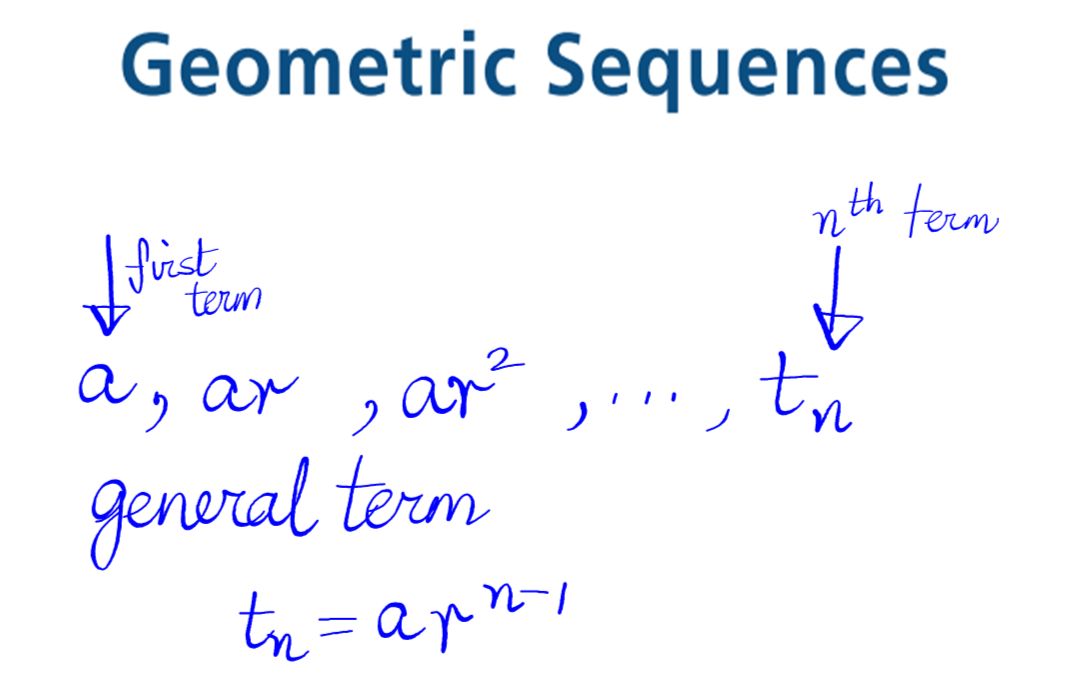 Geometric Sequences
nth term
first
term
a, ar, ar², ..., tₙ
general term
tₙ = arⁿ⁻¹